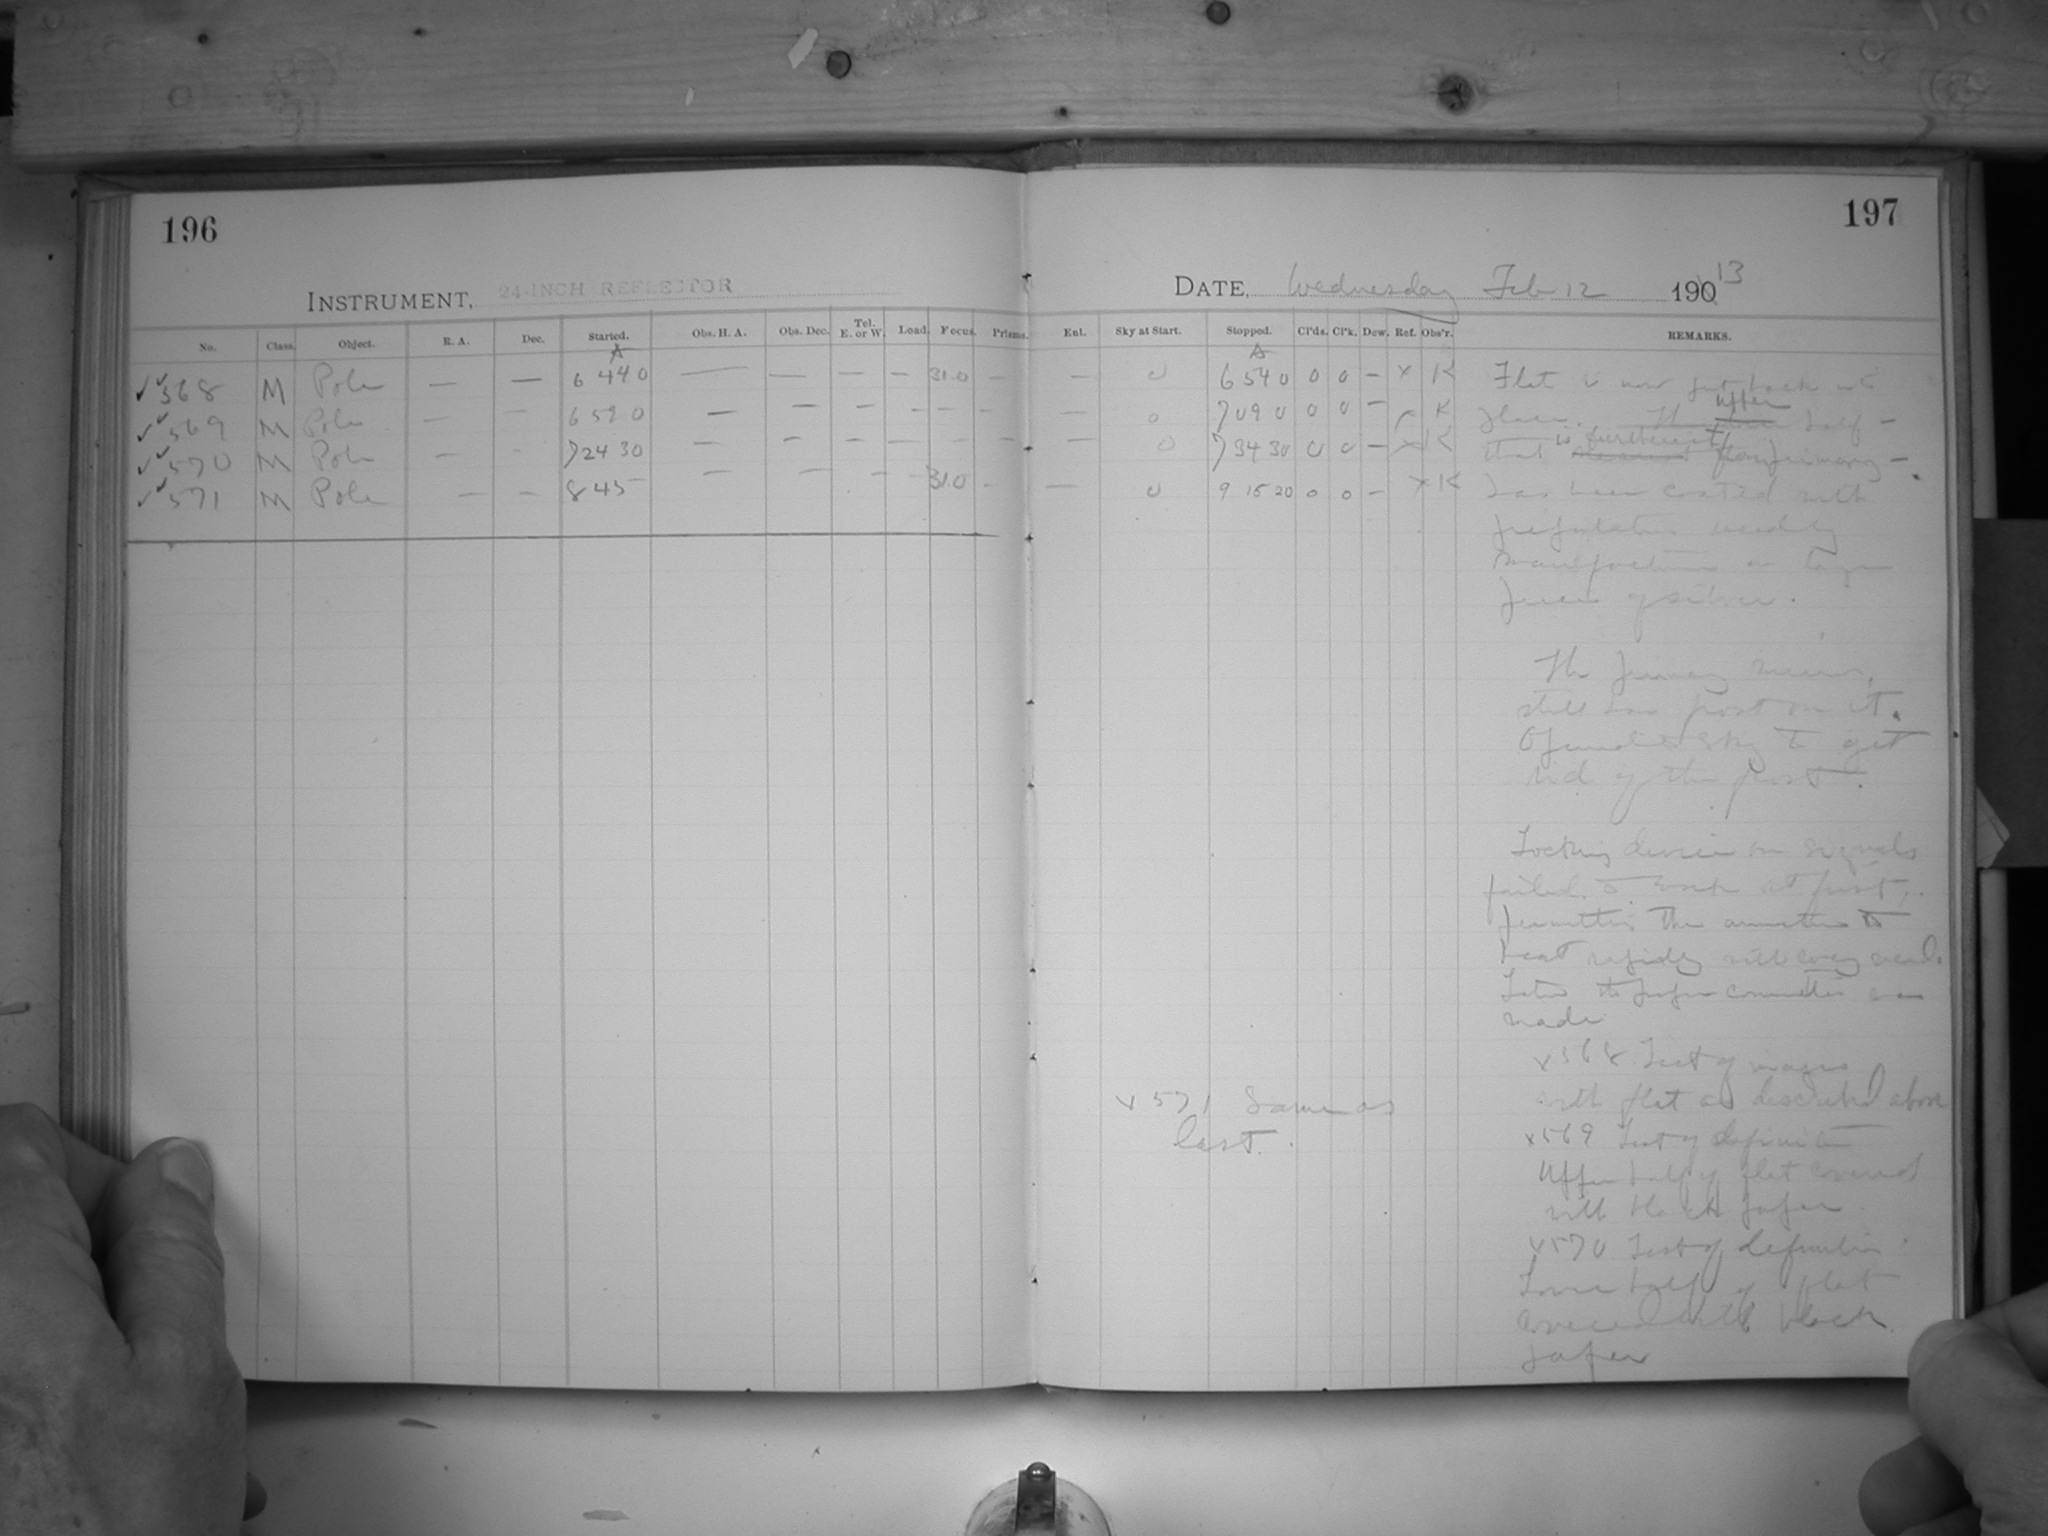 196
INSTRUMENT, 24-INCH REFLECTOR
No. Class. Object. R. A. Dec. Started. Obs. H. A. Obs. Dec. Tel. E. or W. Load. Focus. Prisms.
A
568 M Pole — — 6 44 0 — — — — 31.0 —
569 M Pole — — 6 59 0 — — — — — —
570 M Pole — - 7 24 30 — — — — — —
571 M Pole — — 8 45 — — — — 31.0 —
197
DATE, Wednesday Feb 12 1913
Ent. Sky at Start. Stopped. Cl'ds. Cl'k. Dew. Ref. Obs'r. REMARKS.
A
— 0 6 54 0 0 0 — x K
— 0 7 09 0 0 0 — K
— 0 7 34 30 0 0 — x K
— 0 9 15 20 0 0 — x K
Flat is now put back into
place. The upper half —
that is furthest from primary —
has been coated with
preparation
manufacture on large
pieces of silver.
The primary mirror
still has frost on it.
Opened sky to get
rid of the frost.
Locking device on signals
failed to work at first,
permitting the armature to
heat rapidly with every
Later the proper connection was
made
x568 Test of images
with flat as described above
x569 Test of definition
Upper half of flat covered
with black paper.
x570 Test of definition
Lower half of flat
covered with black
paper
x571 Same as
last.